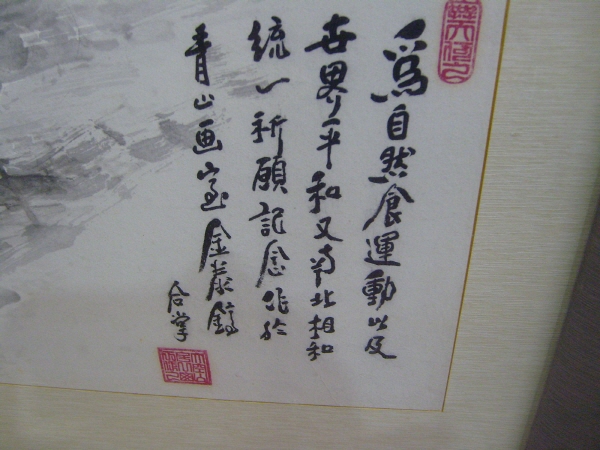 爲自然食運動以及
世界平和又南北相和
統一祈願記念作於
青山画室金
合掌